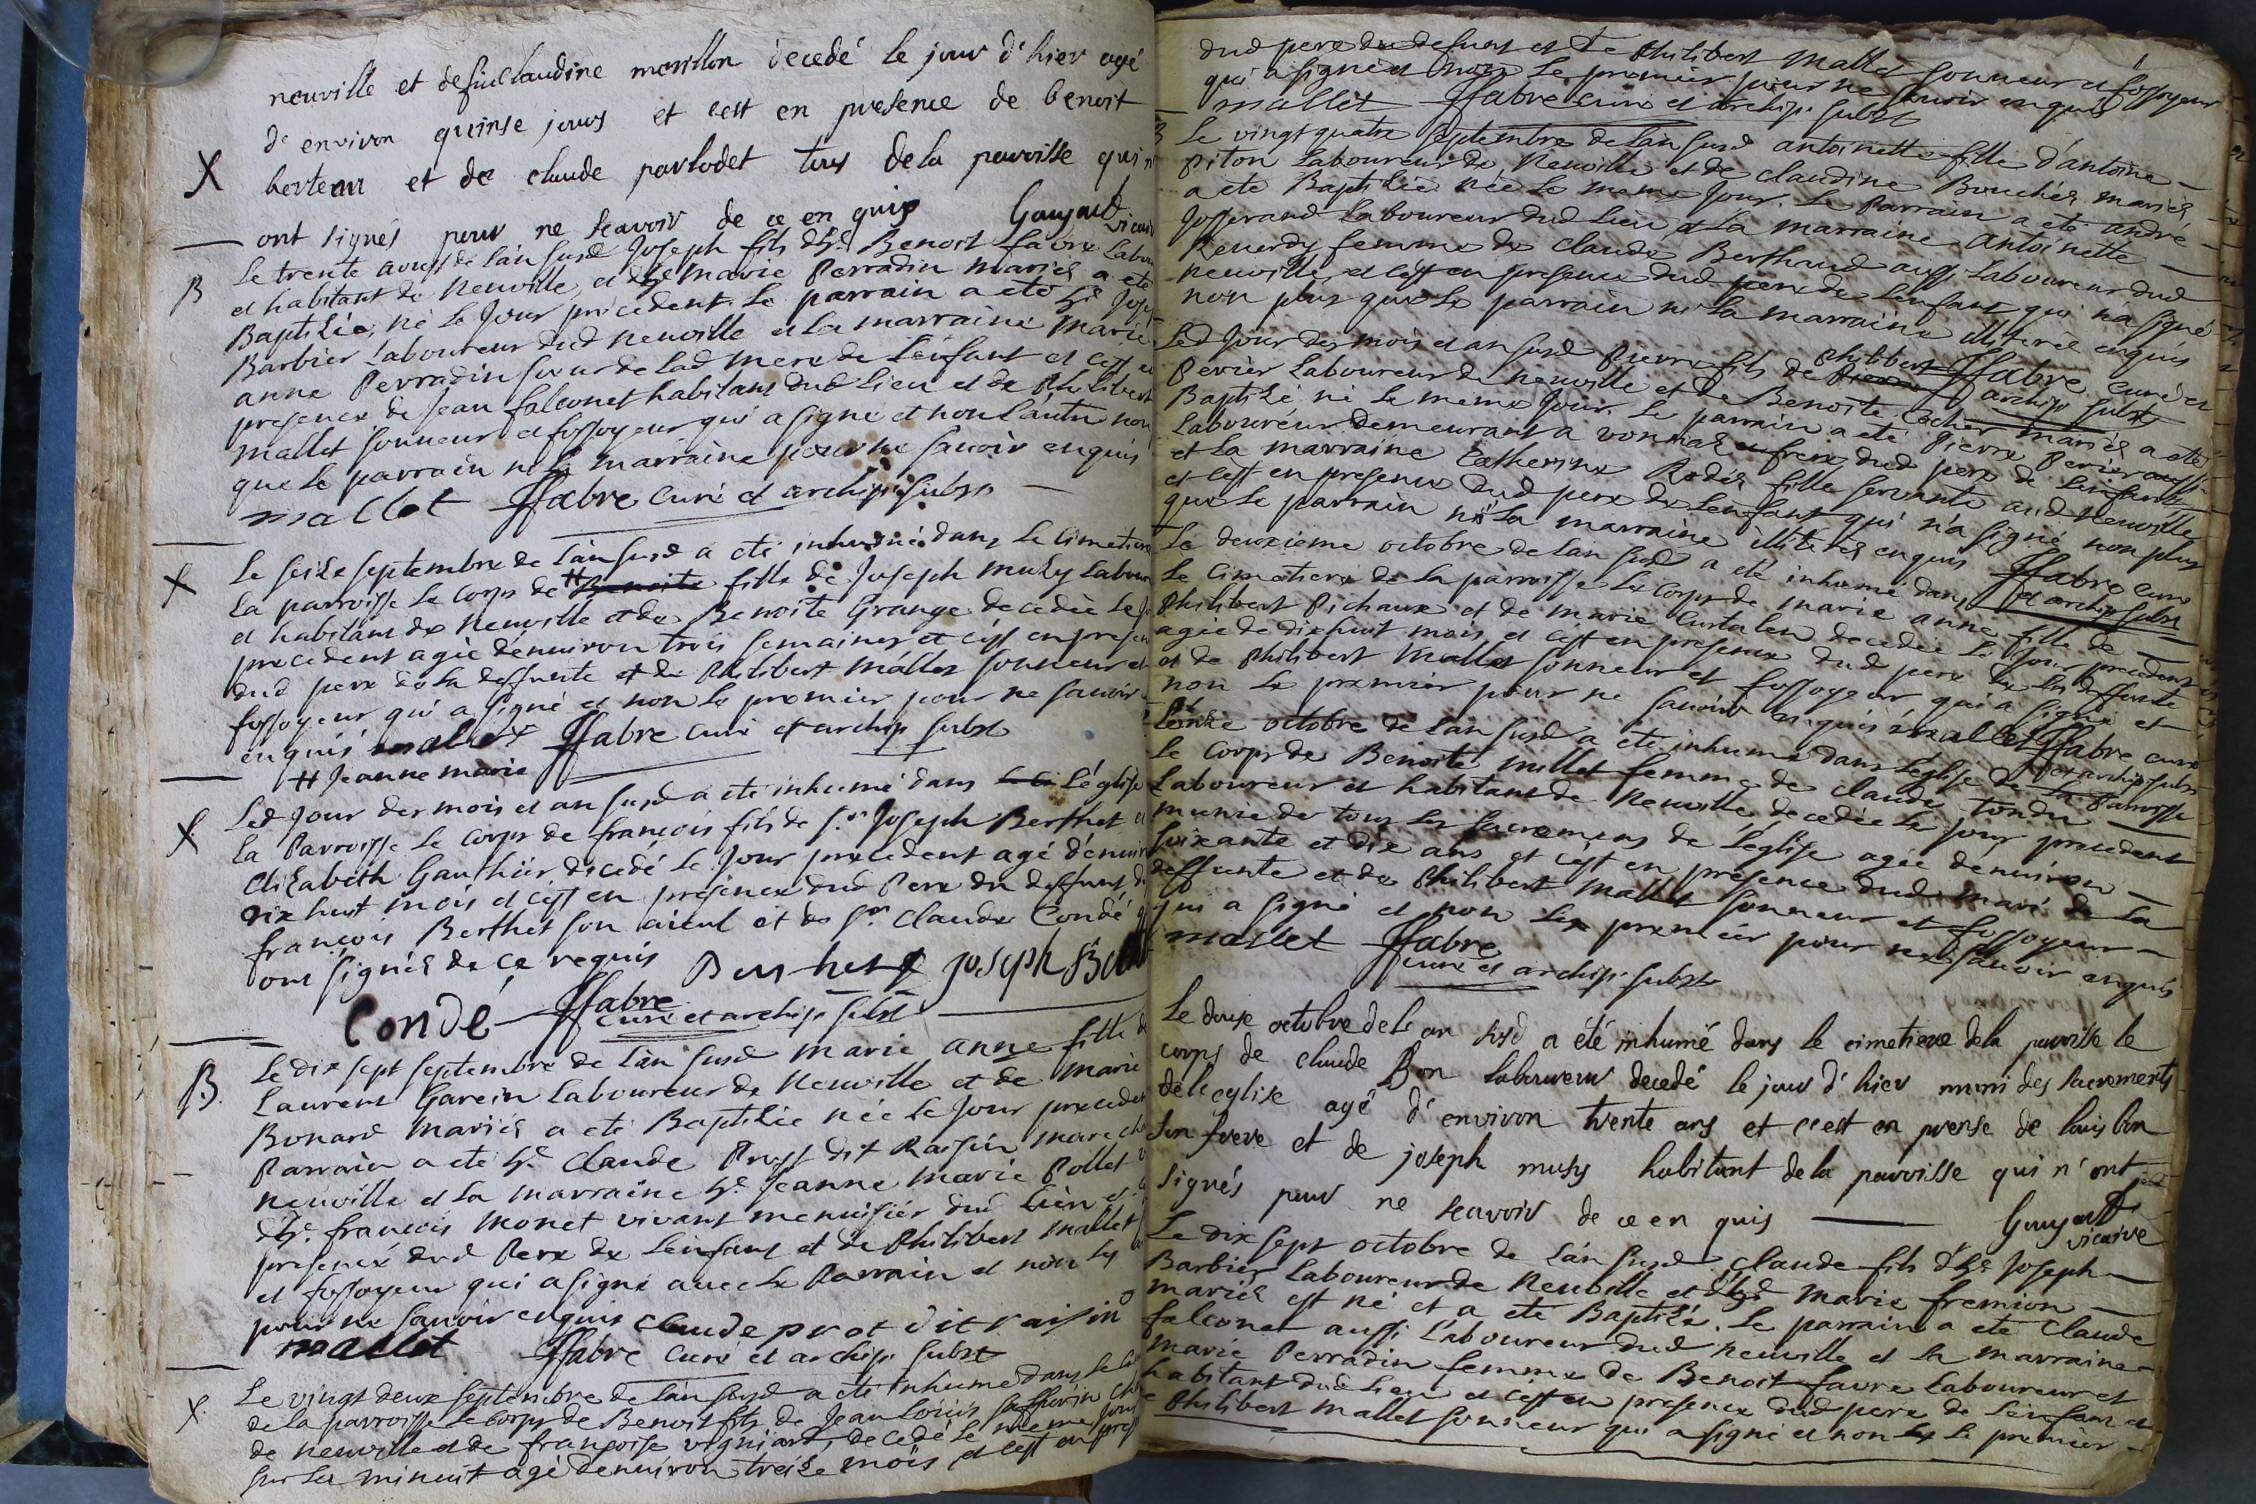 neuville et de fuë laudine morillon decedé le jour d'hier agé
d'environ quinse jours et cest en presence de benoit
X berteau et de claude parlodet tous de la paroisse qui n
ont signés pour ne scavoir de ce en quis Gauyaud vicaire
B Le trente aoust de lan susd Joseph fils d'h.e Benoit favre Labou
et habitant de Neuville et d'h.e marie Perradin mariés a ete
Baptisée, né Le Jour précédent. Le parrain a ete h.e Josep
Barbier Laboureur dud neuville et La marraine marie
anne Perradin soeur de Lad mere de L'enfant et cest en
presence de Jean falconet habitant dud Lieu et de Philibert
mallet sonneur et fossoyeur qui a signé et non L'autre non
que le parrain ni La marraine pour ne savoir enquis
mallet ffabre curé et archip. subst
X Le seize septembre de L'an susd a ete inhumé dans Le Cimetiere
La parroisse Le corps de # Benoite fille de Joseph muzy Labour
et habitant de Neuville et de Benoite Grange decedée Le Jo
precedent agée d'environ trois semaines et c'est en presen
dud pere de La deffunte et de Philibert mallet sonneur et
fossoyeur qui a signé et non Le premier pour ne savoir
enquis mallet ffabre curé et archip subst
# Jeanne marie
X Led Jour des mois et an susd a ete inhumé dans L'église
La Parroisse Le corps de francois fils de s.r Joseph Berthet et
Elizabeth Gauthier decedé Le Jour precedent agé d'enuir
dix huit mois et c'est en présence dud Pere du deffunt de
francois Berthet son aieul et de s.r Claude Condé q
ont signés de ce requis Berthet joseph Bert
Condé ffabre
curé et archip. subst
B. Le dix sept septembre de L'an susd marie anne fille de
Laurent Garein Laboureur de Neuville et de marie
Bonard mariés a ete Baptisée née Le Jour precedent
Parrain a ete h.e Claude Prost dit Raisin marech
neuville et La marraine h.e Jeanne Marie Pollet v
d'h.e francois monet vivant menuisier dud Lieu et c
presence dud Pere de L'enfant et de Philibert mallet
et fossoyeur qui a signé avec Le Parrain et non Les
pour ne savoir enquis claude prot dit raisin
mallet ffabre curé et archip. subst
X. Le vingt deux septembre de L'an susd a ete inhumé dans Le Ci
de La parroisse Le corps de Benoit fils de Jean Louis
de neuville et de francoise vigniard, decedé Le meme Jour
sur Les minuit agé d'environ treize mois et c'est en pres
dud pere du defunt et de Philibert mallet sonneur et fossoyeur
qui a signé et non Le premier pour ne savoir enquis
mallet ffabre curé et archip. subst
B Le vingt quatre septembre de Lan susd antoinette fille d'antoine
Piton Laboureur de Neuville et de Claudine Bouchés mariés
a ete Baptisée née Le meme Jour. Le Parrain a ete andré
Josserand Laboureur dud Lieu et La marraine antoinette
Renerdy femme de Claude Berthaud aussi Laboureur dud
neuville, et c'est en presence dud pere de L'enfant qui n'a signé
non plus que Le parrain ni La marraine illiterés enquis
ffabre curé et
archip subst
Led Jour des mois et an susd Pierre fils de philibert
Périer Laboureur de neuville et de Benoite Cocher mariés a ete
Baptisé né Le meme Jour. Le parrain a ete Pierre Perier aussi
Laboureur demeurant a vonnas frere dud pere de L'enfant
et La marraine Catherine Rodés fille servante aud neuville
et c'est en presence dud pere de L'enfant qui n'a signé non plus
que Le parrain ni La marraine illiterés enquis ffabre curé
et archip subst
Le deuxieme octobre de Lan susd a ete inhumé dans
Le Cimetiere de La parroisse Le Corps de marie anne fille de
Philibert Pichaux et de marie Curtalen decedée Le Jour precedent
agée de dix huit mois, et c'est en presence dud pere de La deffunte
et de Philibert mallet sonneur et fossoyeur qui a signé et
non Le premier pour ne savoir enquis mallet ffabre curé
et archip subst
L'onze octobre de L'an susd a ete inhumé dans L'eglise de La Parroisse
Le corps de Benoite millet femme de Claude Tondu
Laboureur et habitant de Neuville decedée Le Jour precedent
munie de tous Les sacremens de L'église agée d'environ
soixante et dix ans et c'est en presence dud mari de La
deffunte et de Philibert mallet sonneur et fossoyeur
qui a signé et non Le premier pour ne savoir enquis
mallet ffabre
curé et archip. subst
Le douse octobre de L an susd a été inhumé dans le cimetiere de la paroisse le
corps de claude Bon laboureur decedé le jour d'hier muni des sacrements
de l'eglise agé d'environ trente ans et c'est en prense de louis bon
son frere et de joseph musy habitant de la paroisse qui n'ont
signés pour ne scavoir de ce en quis Gauyaud
vicaire
Le dix sept octobre de L'an susd Claude fils d'h.e Joseph
Barbier Laboureur de Neuville et d'h.e Marie fremion
mariés est né et a ete Baptisé. Le parrain a ete Claude
falconet aussi Laboureur dud neuville et La marraine
marie Perradin femme de Benoit favre Laboureur et
habitant dud Lieu et c'est en presence dud pere de L'enfant et
de Philibert mallet sonneur qui a signé et non Le premier